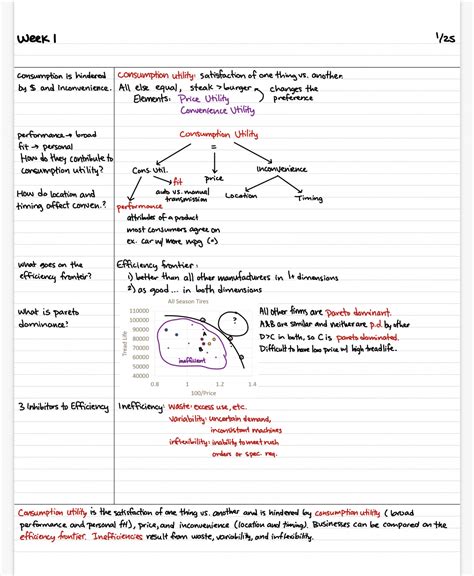 Week 1
1/25
Consumption is hindered
by $ and Inconvenience.
Consumption utility: satisfaction of one thing vs. another.
All else equal, steak > burger
changes the
preference
Elements: Price Utility
Convenience Utility
performance → broad
fit → personal
How do they contribute to
consumption utility?
How do location and
timing affect conven.?
Consumption Utility
=
Cons. Util.
price
Inconvenience
fit
auto vs. manual
transmission
Location
Timing
performance
attributes of a product
most consumers agree on
ex. car w/ more mpg (+)
what goes on the
efficiency frontier?
Efficiency frontier:
1) better than all other manufacturers in 1+ dimensions
2) as good ... in both dimensions
What is pareto
dominance?
All Season Tires
Tread Life
110000
100000
90000
80000
70000
60000
50000
40000
0.8
1
1.2
1.4
100/Price
?
A
B
C
D
inefficient
All other firms are Pareto dominant.
A&B are similar and neither are p.d by other
D>C in both, so C is pareto dominated.
Difficult to have low price w/ high tread life.
3 Inhibitors to Efficiency
Inefficiency: Waste: excess use, etc.
Variability: uncertain demand,
inconsistent machines
inflexibility: inability to meet rush
orders or spec. req.
Consumption utility is the satisfaction of one thing vs. another and is hindered by consumption utility (broad
performance and personal fit), price, and inconvenience (location and timing). Businesses can be compared on the
efficiency frontier. Inefficiencies result from waste, variability, and inflexibility.